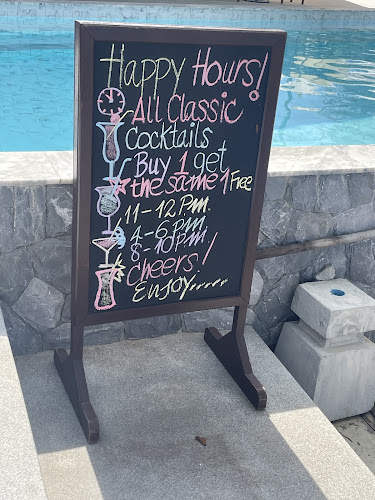 Happy Hours!
All Classic
Cocktails
Buy 1 get
the same 1 Free
11-12 P.m.
4-6 P.m.
8-10 P.m.
Cheers!
Enjoy.....